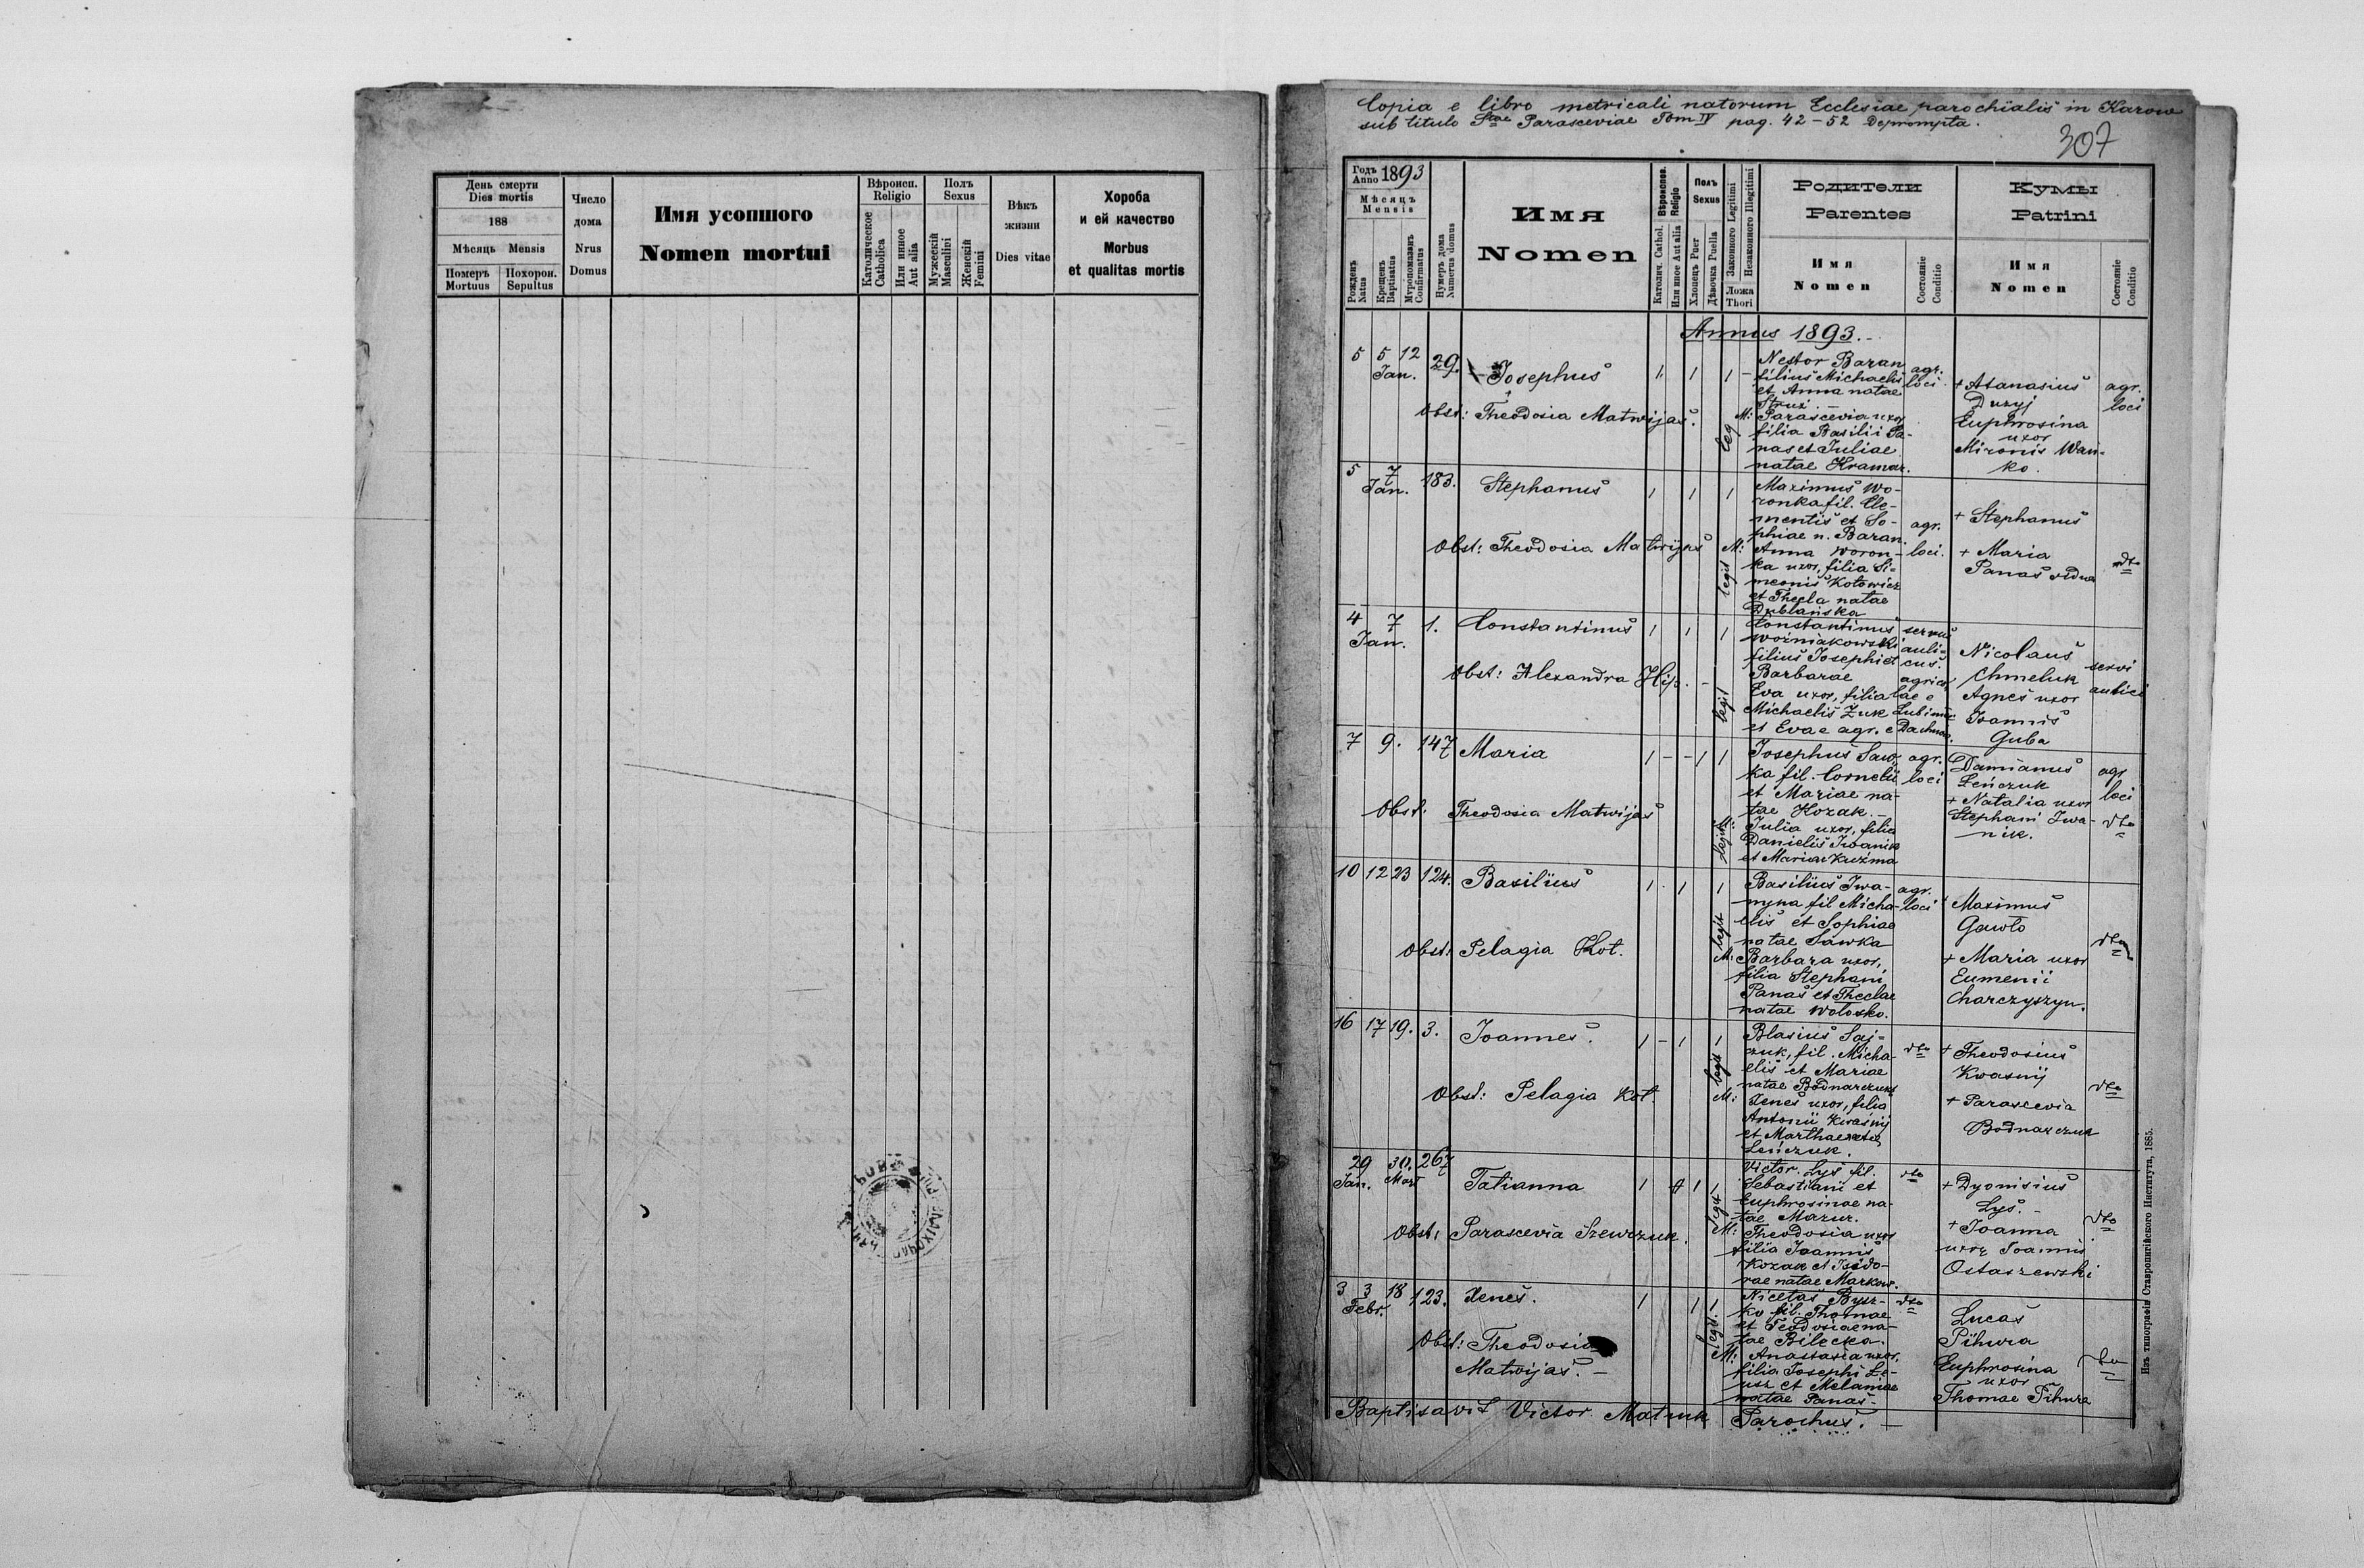 День смерти
Dies mortis
188
Мѣсяць Mensis
Померъ
Mortuus
Похорон.
Sepultus
Число
дома
Nrus
Domus
Имя усопшого
Nomen mortui
Вѣроисп.
Religio
Католическое
Catholica
Или инное
Aut alia
Полъ
Sexus
Мужескій
Masculini
Женскій
Femini
Вѣкъ
жизни
Dies vitae
Хороба
и ей качество
Morbus
et qualitas mortis
Copia e libro metricali natorum Ecclesiae parochialis in Karow
sub titulo Stae Parasceviae Tom IV pag. 42-52 Deprompta.
307
Годъ
Anno 1893
Мѣсяцъ
Mensis
Рожденъ
Natus
Крещенъ
Baptisatus
Мѵропомазанъ
Confirmatus
Нумеръ дома
Numerus domus
Имя
Nomen
Вѣроиспов.
Religio
Католич. Cathol.
Или иное Aut alia
Полъ
Sexus
Хлопець Puer
Дѣвочка Puella
Законного Legitimi
Незаконного Illegitimi
Ложа
Thori
Родители
Parentes
Имя
Nomen
Состояніе
Conditio
Кумы
Patrini
Имя
Nomen
Состояніе
Conditio
Annus 1893.
5 5 12
Jan.
29.
Josephus
1 1 1 -
Obst: Theodosia Matwijas.
leg
Nestor Baran
filius Michaelis
et Anna natae
Struz.
M: Parascevia uxor
filia Basilii Pa-
nas et Juliae
natae Kramar.
agr.
loci
+ Atanasius
Duzyj
Euphrosina
uxor
Mironis Wan-
ko.
agr.
loci
5 7
Jan.
183.
Stephanus
1 1 1
Obst: Theodosia Matwijas
legit
Maximus Wo-
ronka fil. Cle-
mentis et So-
phiae n. Baran.
M: Anna Woron-
ka uxor, filia Si-
meonis Kotowicz
et Thecla natae
Dublanska
agr.
loci.
+ Stephanus
+ Maria
Panas vidua
dto
4 7
Jan.
1.
Constantinus
1 1 1
Obst: Alexandra Hip. -
legit
Constantinus
Wozniakowski
filius Josephi et
Barbarae
Eva uxor, filia
Michaelis Zuk
et Evae agr. e
servus
auli-
cus.
Nicolaus
Chmeluk
Agnes uxor
Joannis
Guba
servi
aulici
7 9.
147
Maria
1 - - 1 1
Obst: Theodosia Matwijas
legit
Josephus Saw-
ka fil. Cornelii
et Mariae na-
tae Kozak.
M: Julia uxor, filia
Danielis Iwanik
et Mariae Kuźma
agr.
loci
Damianus
Leńczuk
+ Natalia uxor
Stephani Iwa-
nik.
agr
loci
dto
10 12 23
124.
Basilius
1 . 1 1
Obst: Pelagia Kot.
legit
Basilius Iwa-
nyna fil Micha-
elis et Sophiae
natae Sawka
M: Barbara uxor,
filia Stephani
Panas et Theclae
natae Wolosko.
agr.
loci
Maximus
Gawło
+ Maria uxor
Eumenii
Charczyszyn.
dto
16 17 19.
3.
Joannes.
1 - 1 1
Obst: Pelagia Kot.
legit
Blasius Saj-
czuk, fil. Micha-
elis et Mariae
natae Bodnarczuk
M: Xenes uxor, filia
Antonii Kwaśnij
et Marthae natae
Leńczuk.
dto
+ Theodosius
Kwasnij
+ Parascevia
Bodnarczuk
dto
29 30.
Jan. Mart
267
Tatianna
1 1 1
Obst: Parascevia Szewczuk.
legit
Victor Lys fil.
Sebastiani et
Euphrosinae na-
tae Mazur.
M: Theodosia uxor
filia Joannis
Kozak et Isido-
rae natae Markow.
dto
+ Dyonisius
Lys. -
+ Joanna
uxor Joannis
Ostaszewski
dto
3 3 18
Febr.
123.
Xenes.
1 1 1
Obst: Theodosia
Matwijas. -
legt.
Nicetas
ko fil. Thomae
et Teodosiae na-
tae Bilecka.
M: Anastasia uxor,
filia Josephi Le-
usz et Melaniae
natae Panas -
dto
Lucas
Pihura
Euphrosina
uxor
Thomae Pihura
dto
Baptisavit Victor Matiuk Parochus.
Изъ типографіи Ставропигійского Института, 1885.